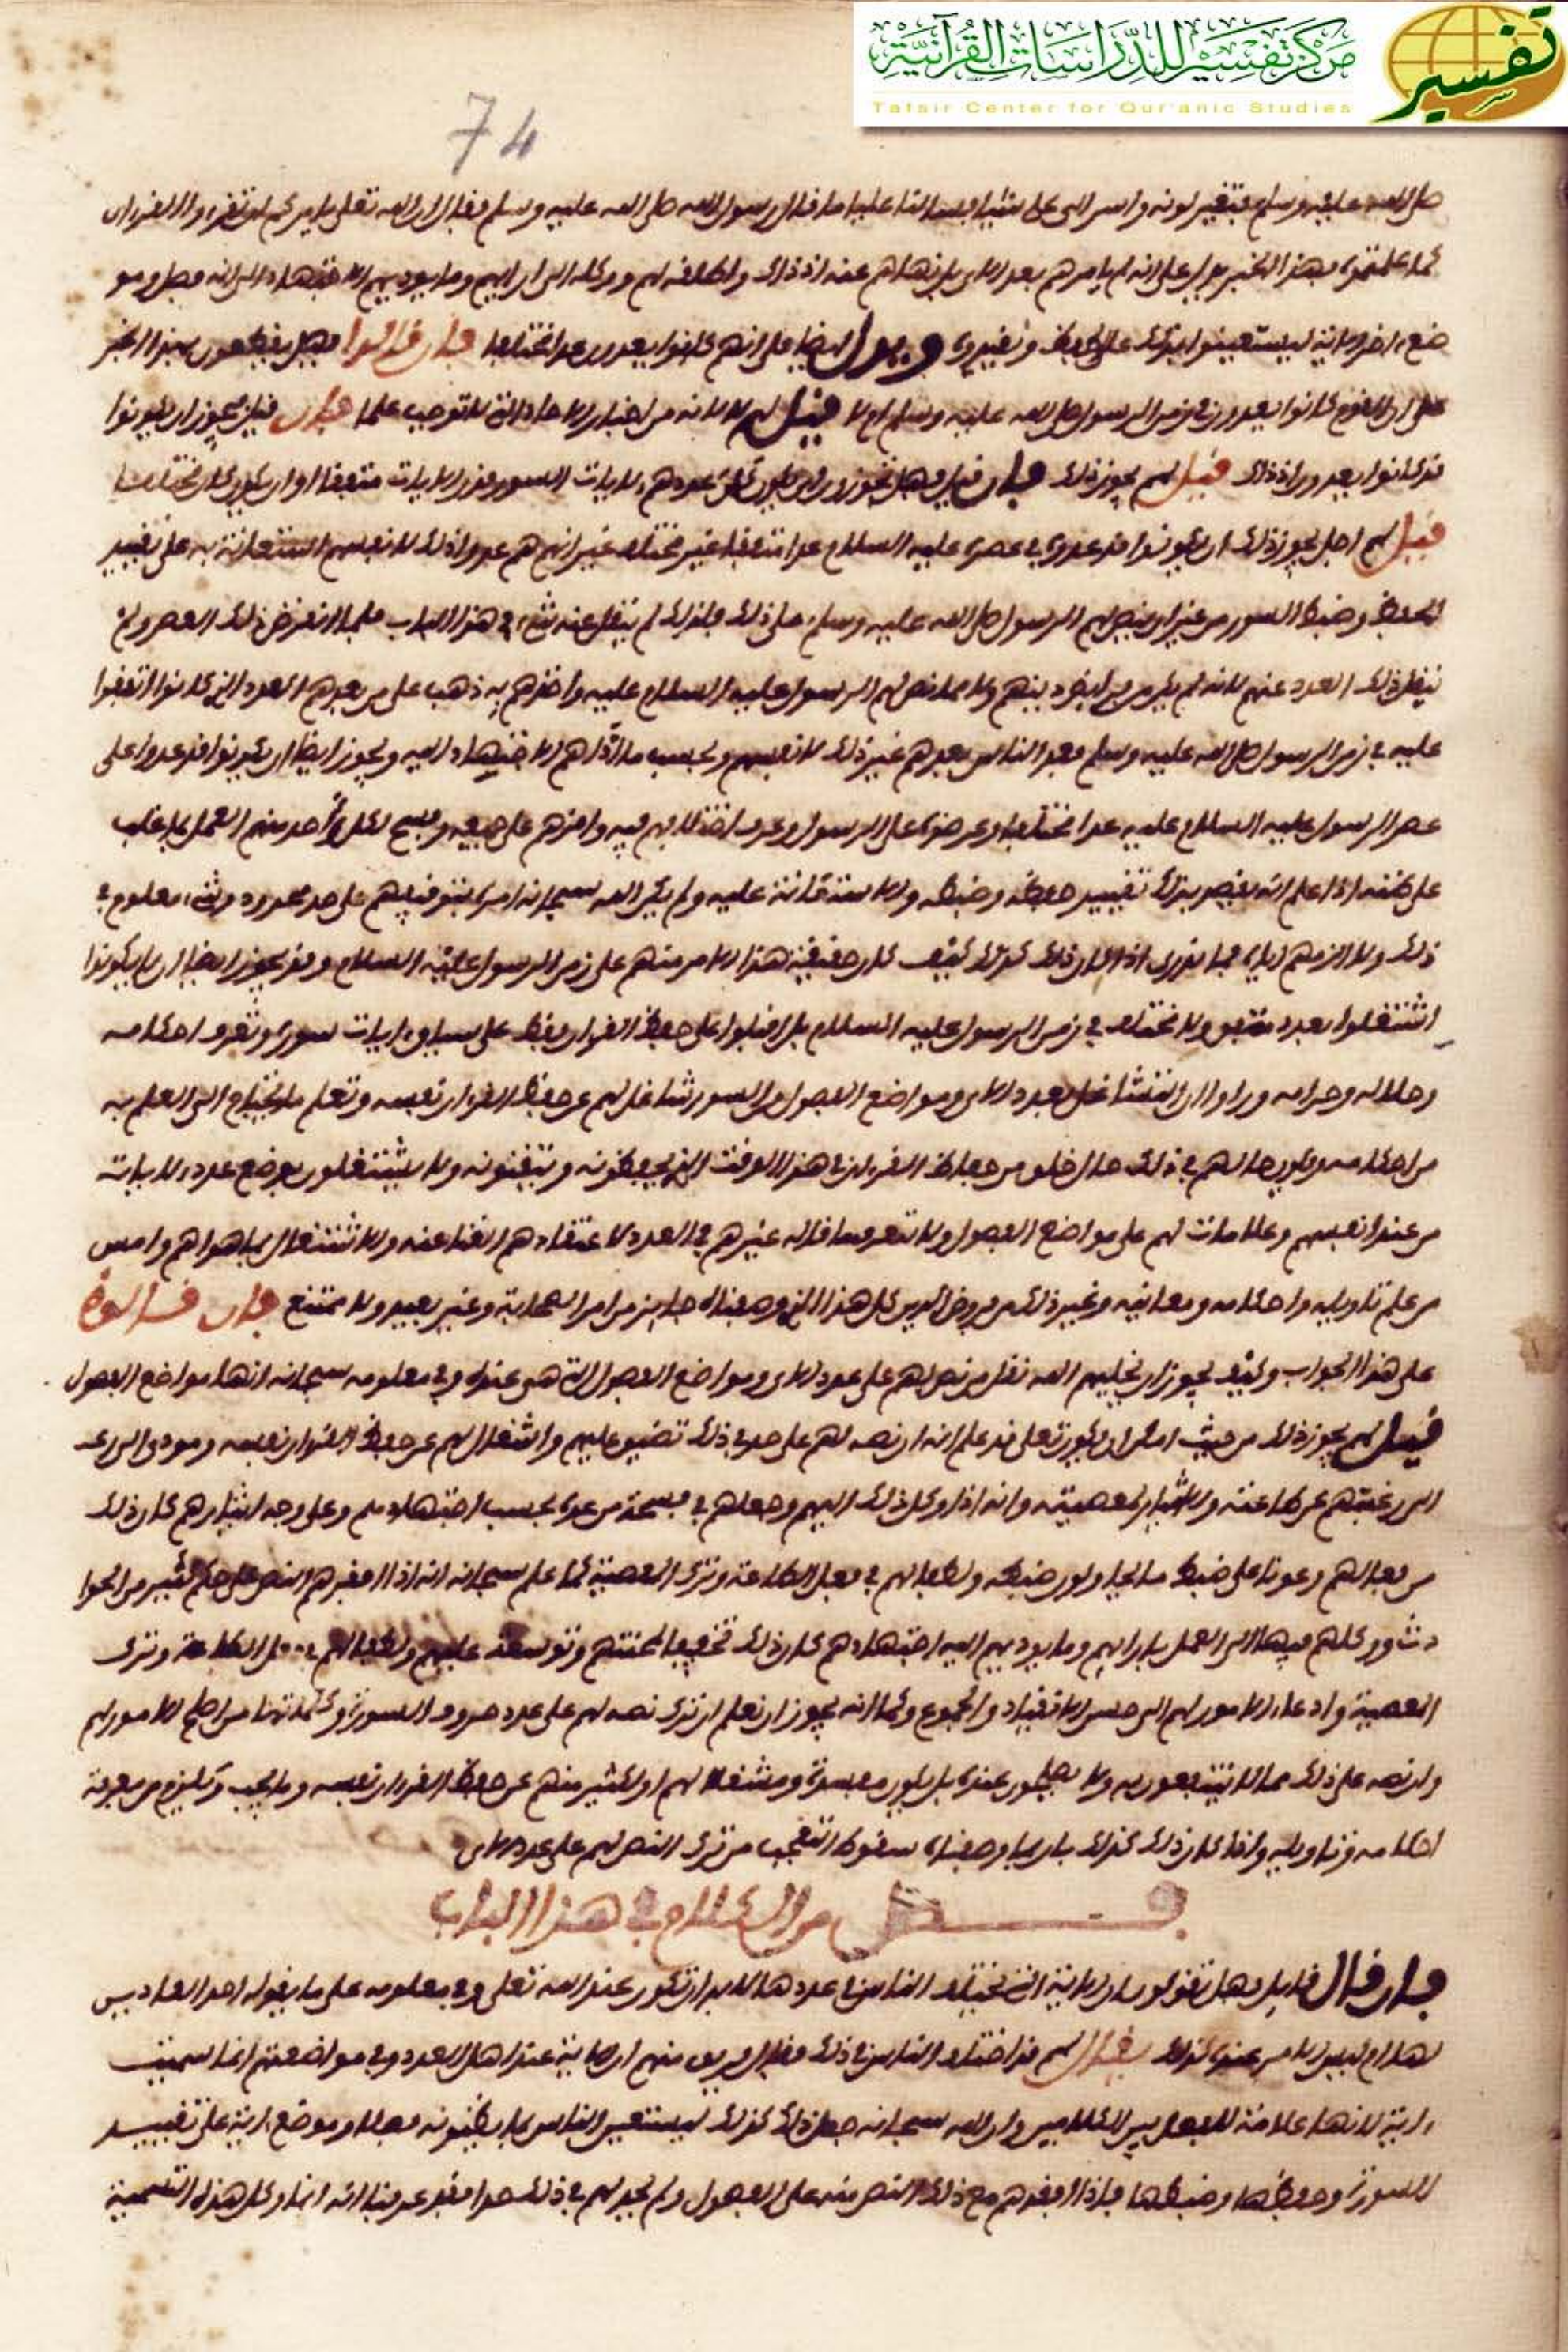 مركز تفسير للدراسات القرآنية
تفسير
Tafsir Center for Qur'anic Studies
74
صلى الله عليه وسلم فتغير لونه وأسر إلى علي شيئا فسألنا عليا ما قال رسول الله صلى الله عليه وسلم فقال إن الله تعلى يامركم ان تقرءوا القرءان
كما علمتموه فهذا الخبر يدل على انه لم يامرهم بعدد الاي بل نهاهم عنه اذ ذاك واطلقه لهم ووكله الى ارايهم وما يوديهم الاجتهاد الى انه فصل ومو
ضع ءاخر الاية ليستعينوا بذلك على الحفظ وتقييده ويدل ايضا على انهم كانوا يعدون عدا مختلفا فان قالوا فهل يقطعون بهذا الخبر
على ان القوم كانوا يعدون في زمن الرسول صلى الله عليه وسلم ام لا قيل لهم لا لانه من اخبار الاحاد التي لا توجب علما فان قيل فيجوز ان يكونوا
قد كانوا يعدون اذ ذاك قيل لهم يجوز ذلك فان قيل فهل تجوزون ان يكون كان عددهم لايات السور وقدر الايات متفقا او ان يكون كان مختلفا
قيل لهم اجل يجوز ذلك ان يكونوا قد عدوه في عصره عليه السلام عدا متفقا غير مختلف غير انهم هم عدوا ذلك لانفسهم استعانة به على تقييد
الحفظ وضبط السور من غير ان ينص لهم الرسول صلى الله عليه وسلم على ذلك فلذلك لم ينقل عنه شيء في هذا الباب فلما انقرض ذلك العصر ولم
ينقل ذلك العدد عنهم لانه لم يكن من فرايض دينهم ولا مما نص لهم الرسول عليه السلام عليه واخذهم به ذهب على من بعدهم العدد الذي كانوا اتفقوا
عليه في زمن الرسول صلى الله عليه وسلم فعد الناس بعدهم غير ذلك لانفسهم وبحسب ما اداهم الاجتهاد اليه ويجوز ايضا ان يكونوا قد عدوا على
عصر الرسول عليه السلام عدا مختلفا وعرضوه على الرسول وعرف اختلافهم فيه واقرهم على جميعه وفسح لكل واحد منهم العمل بما غلب
على ظنه اذا علم انه يقصد بذلك تقييد حفظه وضبطه والاستعانة عليه ولم يكن الله سبحانه امره بتوقيفهم على حد محدود وشيء معلوم في
ذلك ولا الزمهم اياه فما ندري اذا كان ذلك كذلك كيف كان حقيقة هذا الامر منهم على زمن الرسول عليه السلام وقد يجوز ايضا ان لا يكونوا
اشتغلوا بعدد متفق ولا مختلف في زمن الرسول عليه السلام بل اقبلوا على حفظ القران فقط على سياق ءايات سوره وتعرف احكامه
وحلاله وحرامه وراوا ان التشاغل بعدد الاي ومواضع الفصول من السور شاغل لهم عن حفظ القران نفسه وتعلم ما يحتاج الى العلم به
من احكامه ويكون حالهم في ذلك حال خلق من حفاظ القرءان في هذا الوقت الذين يحفظونه ويتقنونه ولا يشتغلون بوضع عدد لاياته
من عند انفسهم وعلامات لهم على مواضع الفصول ولا تعرف ما قاله غيرهم في العدد لاعتقادهم الغنا عنه والاشتغال بما هو اهم وامس
من علم تاويله واحكامه ومعانيه وغير ذلك من فروض الدين كل هذا الذي وصفناه جايز من امر الصحابة وغير بعيد ولا ممتنع فان قالوا
على هذا الجواب وكيف يجوز ان يخليهم الله تعلى من نص لهم على عدد الاي ومواضع الفصول التي هي عنده وفي معلومه سبحانه انها مواضع الفصول
قيل لهم يجوز ذلك من حيث امكن ان يكون تعلى قد علم انه ان نصه لهم على حد في ذلك تضييق عليهم واشغال لهم عن حفظ القران نفسه ومودي الى
الى رغبتهم عن طاعته والايثار لمعصيته وانه اذا وكل ذلك اليهم وجعلهم في فسحة من عده بحسب اجتهادهم وعلى وجه ايثارهم كان ذلك
من فعالهم وعونا على ضبط ما يحاولون ضبطه ولطفا لهم في فعل الطاعة وترك المعصية كما علم سبحانه انه اذا افقدهم النص على حكم كثير من الحوا
دث ووكلهم فيها الى العمل بارايهم وما يوديهم اليه اجتهادهم كان ذلك تخفيفا لمحنتهم وتوسعة عليهم ولطفا لهم في فعل الطاعة وترك
المعصية وادعا الامور لهم الى حسن الانقياد والخضوع وكما انه يجوز ان نعلم ان ترك نصه لهم على عدد حروف السورة وكلماتها من اصلح الامور لهم
وان نصه على ذلك مما لا ينتفعون به ولا يصلحون عنده بل يكون مفسدة ومشغلا لهم او لكثير منهم عن حفظ القران نفسه وما يجب ويلزم من معرفة
احكامه وتاويله واذا كان ذلك كذلك بان بما وصفناه سقوط التعجب من ترك النص لهم على عدد الاي
فصل من الكلام في هذا الباب
فان قال قايل فهل تقولون ان الاية التي يختلف الناس في عددها لا بد ان تكون عند الله تعلى وفي معلومه على ما يقوله احد العادين
لها ام ليس الامر عنده كذلك يقال لهم قد اختلف الناس في ذلك فقال فريق منهم ان الاية عند اهل العدد وفي مواضعتهم انما سميت
ءاية لانها علامة للفصل بين الكلامين وان الله سبحانه جعل ذلك كذلك ليستعين الناس بما يظنونه فصلا وموضع ءاية على تقييد
السورة وحفظها وضبطها فاذا افقدهم مع ذلك النص منه على الفصول ولم يحد لهم في ذلك حدا فقد عرفنا انه انما وكل هذه التسمية